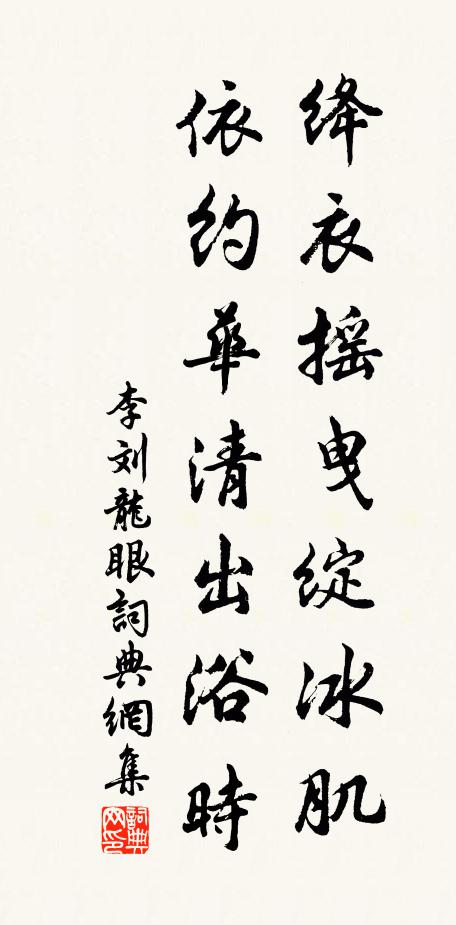 绛衣摇曳绽冰肌
依约华清出浴時
李刘龍眼詞典網集
詞典网印